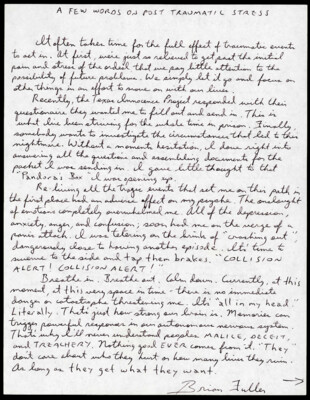 A FEW WORDS ON POST TRAUMATIC STRESS
It often takes time for the full effect of traumatic events
to set in. At first, we're just so relieved to get past the initial
pain and stress of the ordeal that we pay little attention to the
possibility of future problems. We simply let it go and focus on
other things in an effort to move on with our lives.
Recently, the Texas Innocence Project responded with their
questionaire they wanted me to fill out and send in. This is
what I've been striving for the whole time in prison. Finally
somebody wants to investigate the circumstances that led to this
nightmare. Without a moments hesitation, I dove right into
answering all the questions and assembling documents for the
packet I was sending in. I gave little thought to that
"Pandora's Box" I was opening up.
Re-living all the tragic events that set me on this path in
the first place had an adverse effect on my psyche. The onslaught
of emotions completely overwhelmed me. All of the depression,
anxiety, anger, and confusion, soon had me on the verge of a
panic attack. I was teetering on the brink of "crashing out"
dangerously close to having another episode. It's time to
swerve to the side and tap them brakes. "COLLISION
ALERT! COLLISION ALERT!"
Breathe in. Breathe out. Calm down. Currently, at this
moment, at this very space in time - there is no immediate
danger or catastrophe threatening me. It's "all in my head."
Literally. That's just how strong our brain is. Memories can
trigger powerful responses in our autonomous nervous system.
That's why I'll never understand peoples MALICE, DECEIT,
and TREACHERY. Nothing good EVER comes from it. "They"
don't care about who they hurt or how many lives they ruin.
As long as they get what they want.
Brian Fuller
→